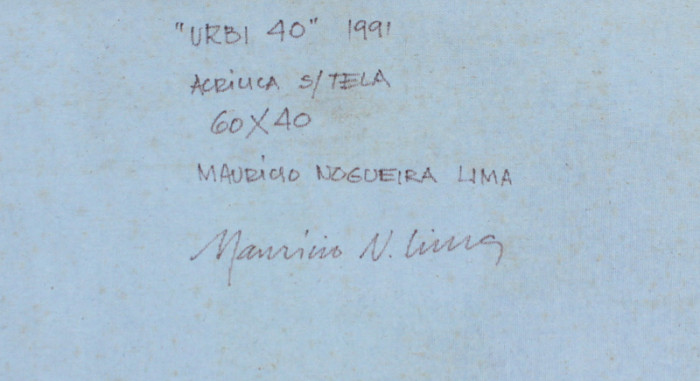 "URBI 40" 1991
ACRÍLICA S/TELA
60X40
MAURÍCIO NOGUEIRA LIMA
Maurício N. Lima